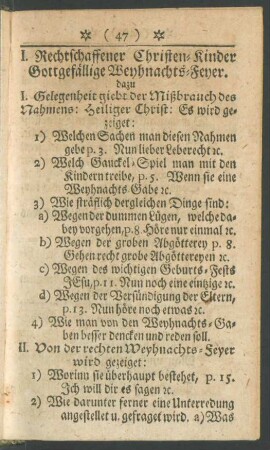 ✲ ( 47 ) ✲
I. Rechtschaffener Christen-Kinder
Gottgefällige Weyhnachts-Feyer.
dazu
I. Gelegenheit giebt der Mißbrauch des
Nahmens: Heiliger Christ: Es wird ge-
zeiget:
1) Welchen Sachen man diesen Nahmen
gebe p. 3. Nun lieber Leberecht ꝛc.
2) Welch Gauckel-Spiel man mit den
Kindern treibe, p. 5. Wenn sie eine
Weyhnachts Gabe ꝛc.
3) Wie sträflich dergleichen Dinge sind:
a) Wegen der dummen Lügen, welche da-
bey vorgehen, p. 8. Höre nur einmal ꝛc.
b) Wegen der groben Abgötterey p. 8.
Gehen recht grobe Abgöttereyen ꝛc.
c) Wegen des wichtigen Geburts-Fests
JEsu, p. 11. Nun noch eine eintzige ꝛc.
d) Wegen der Versündigung der Eltern,
p. 13. Nun höre noch etwas ꝛc.
4) Wie man von den Weyhnachts-Ga-
ben besser dencken und reden soll.
II. Von der rechten Weyhnachts-Feyer
wird gezeiget:
1) Worinn sie überhaupt bestehet, p. 15.
Ich will dir es sagen ꝛc.
2) Wie darunter ferner eine Unterredung
angestellet u. gefraget wird. a) Was